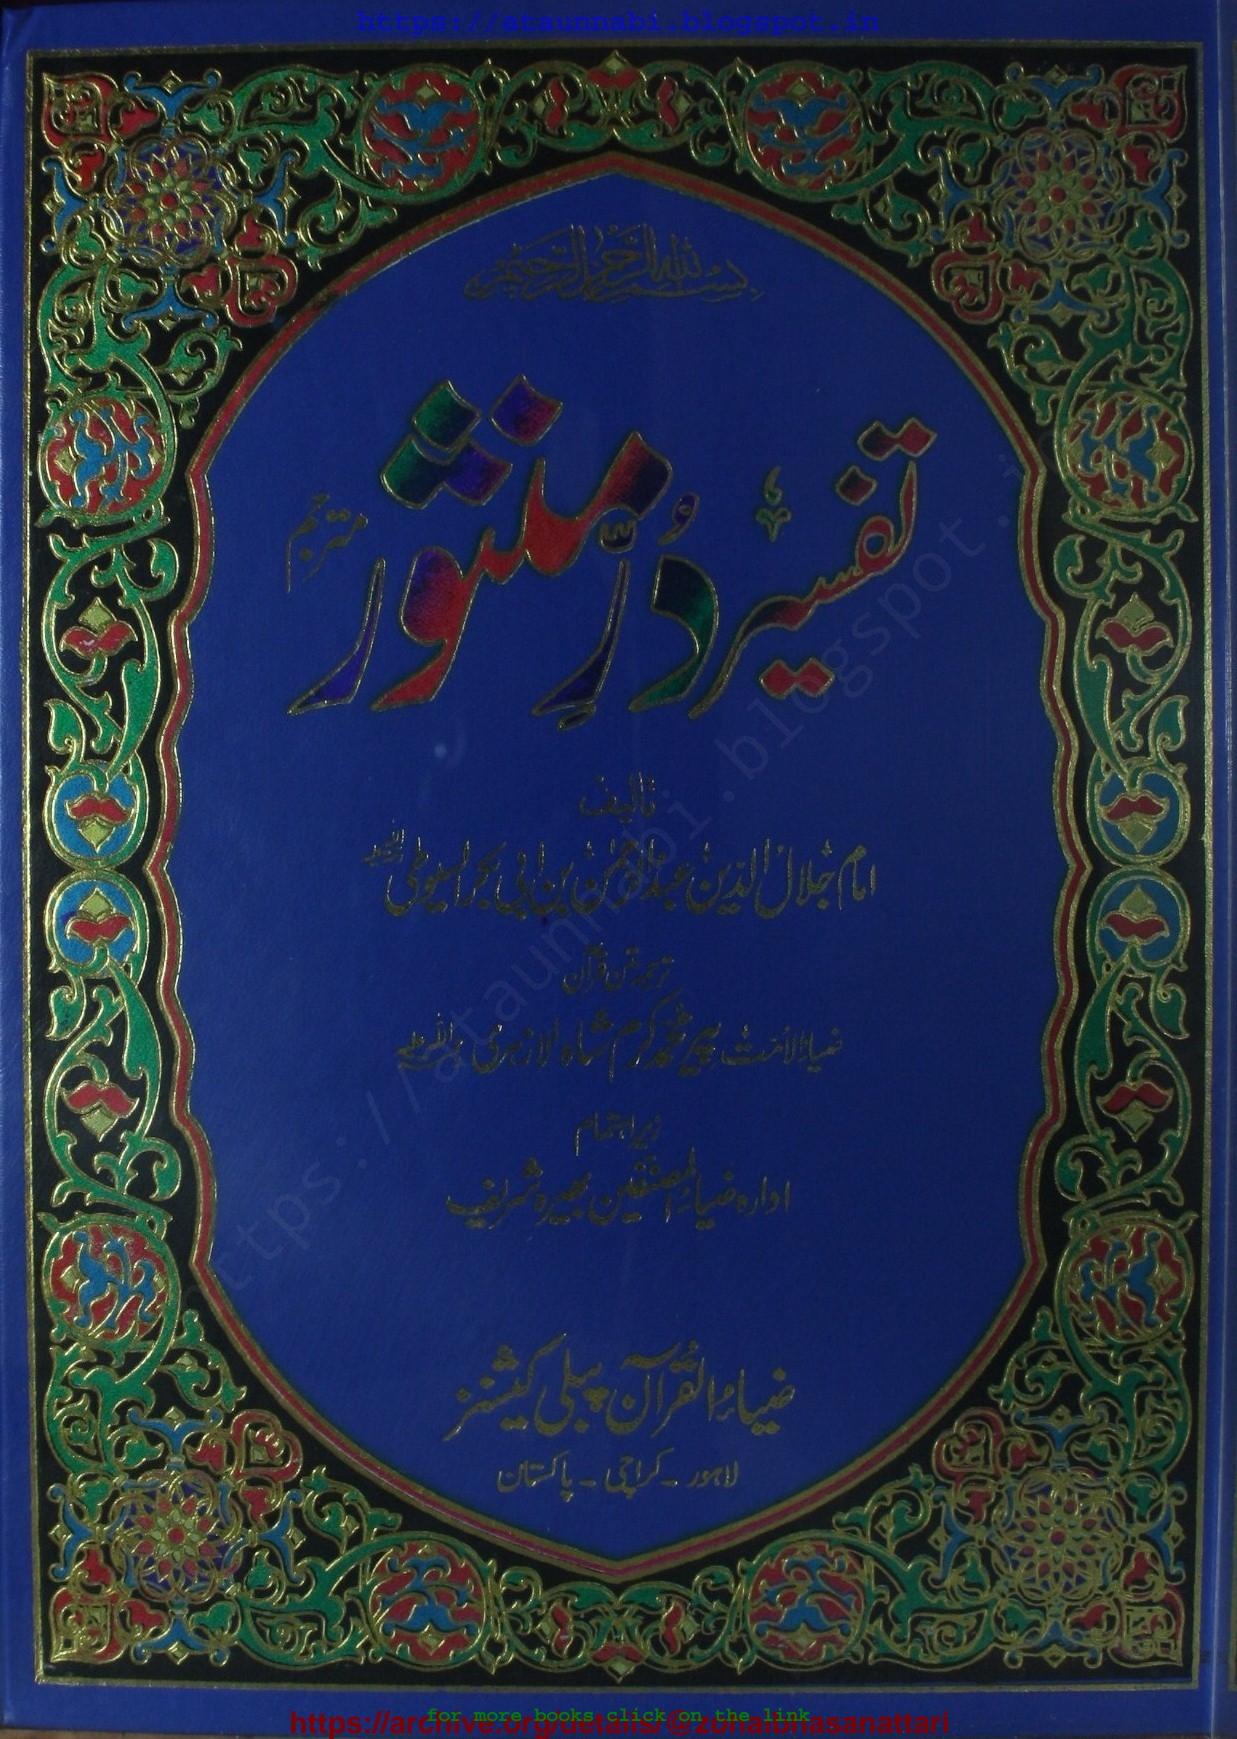 https://ataunnabi.blogspot.in
بسم الله الرحمن الرحیم
تفسیر دُرِّ منثور مترجم
تالیف
امام جلال الدین عبدالرحمٰن بن ابی بکر السیوطی رحمہ اللہ
ترجمہ متن قرآن
ضیاء الامت پیر محمد کرم شاہ الازہری رحمۃ اللہ علیہ
زیر اہتمام
ادارہ ضیاء المصنفین بھیرہ شریف
ضیاء القرآن پبلی کیشنز
لاہور - کراچی - پاکستان
https://ataunnabi.blogspot.in
for more books click on the link
https://archive.org/details/@zohaibhasanattari